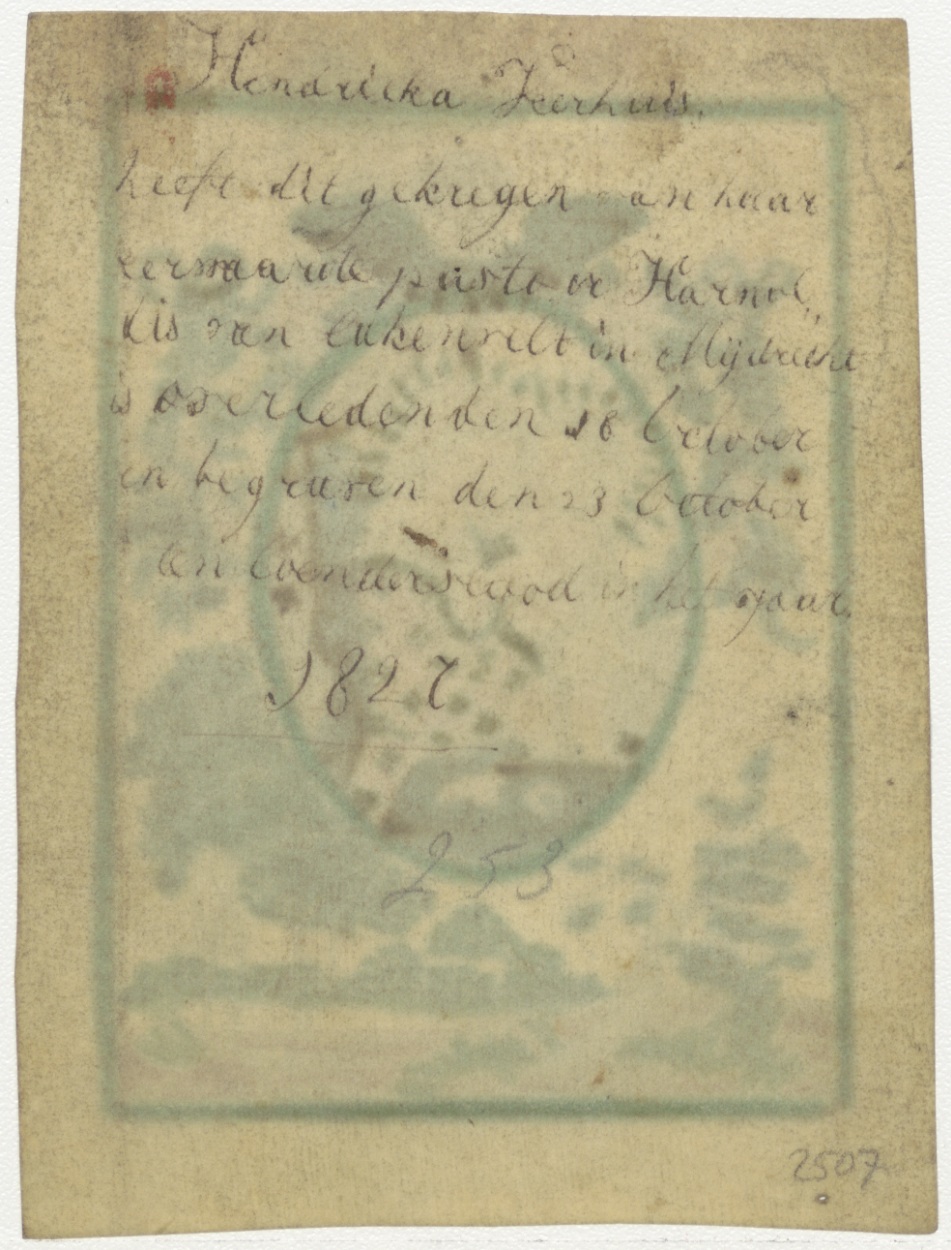 Hendricka Veerhuis.
heeft dit gekregen van haar
eerwaarde pastoor Harnol„
dis van lukenvelt in Mijdrecht
is overleden den 18 October
en begraven den 23 October
an loenderslood in het yaar.
1827
253
2507